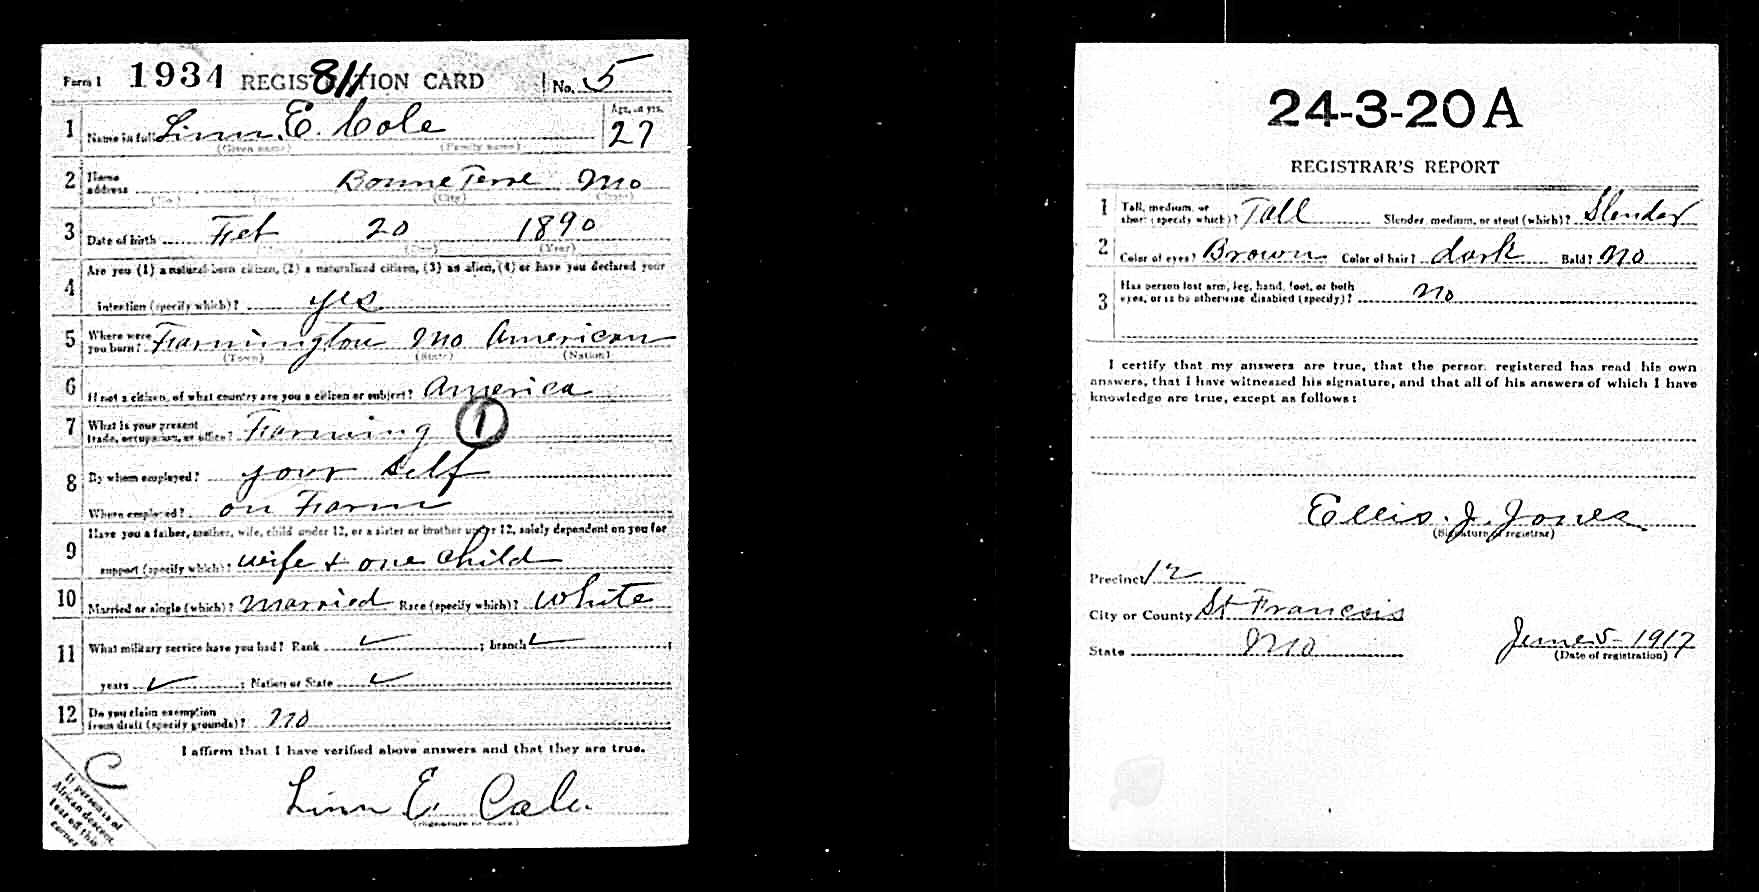 Form 1 1934 REGISTRATION CARD No. 5
811
1 Name in full Linn E. Cole Age, in yrs. 27
(Given name) (Family name)
2 Home address Bonne Terre Mo
(No.) (Street) (City) (State)
3 Date of birth Feb 20 1890
(Year)
4 Are you (1) a natural-born citizen, (2) a naturalized citizen, (3) an alien, (4) or have you declared your
intention (specify which)? yes
5 Where were you born? Farmington Mo American
(Town) (State) (Nation)
6 If not a citizen, of what country are you a citizen or subject? America
7 What is your present trade, occupation, or office? Farming 1
8 By whom employed? your self
Where employed? on Farm
9 Have you a father, mother, wife, child under 12, or a sister or brother under 12, solely dependent on you for
support (specify which)? wife + one child
10 Married or single (which)? Married Race (specify which)? White
11 What military service have you had? Rank ✓ ; branch ✓ ;
years ✓ ; Nation or State ✓
12 Do you claim exemption from draft (specify grounds)? no
I affirm that I have verified above answers and that they are true.
C
Linn E. Cole.
(Signature or mark)
If person is of
African descent,
tear off this
corner
24-3-20 A
REGISTRAR'S REPORT
1 Tall, medium, or short (specify which)? Tall Slender, medium, or stout (which)? Slender
2 Color of eyes? Brown Color of hair? dark Bald? no
3 Has person lost arm, leg, hand, foot, or both
eyes, or is he otherwise disabled (specify)? no
I certify that my answers are true, that the person registered has read his own
answers, that I have witnessed his signature, and that all of his answers of which I have
knowledge are true, except as follows:
Ellis. J. Jones
(Signature of registrar)
Precinct 12
City or County St Francois
State Mo June 5-1917
(Date of registration)